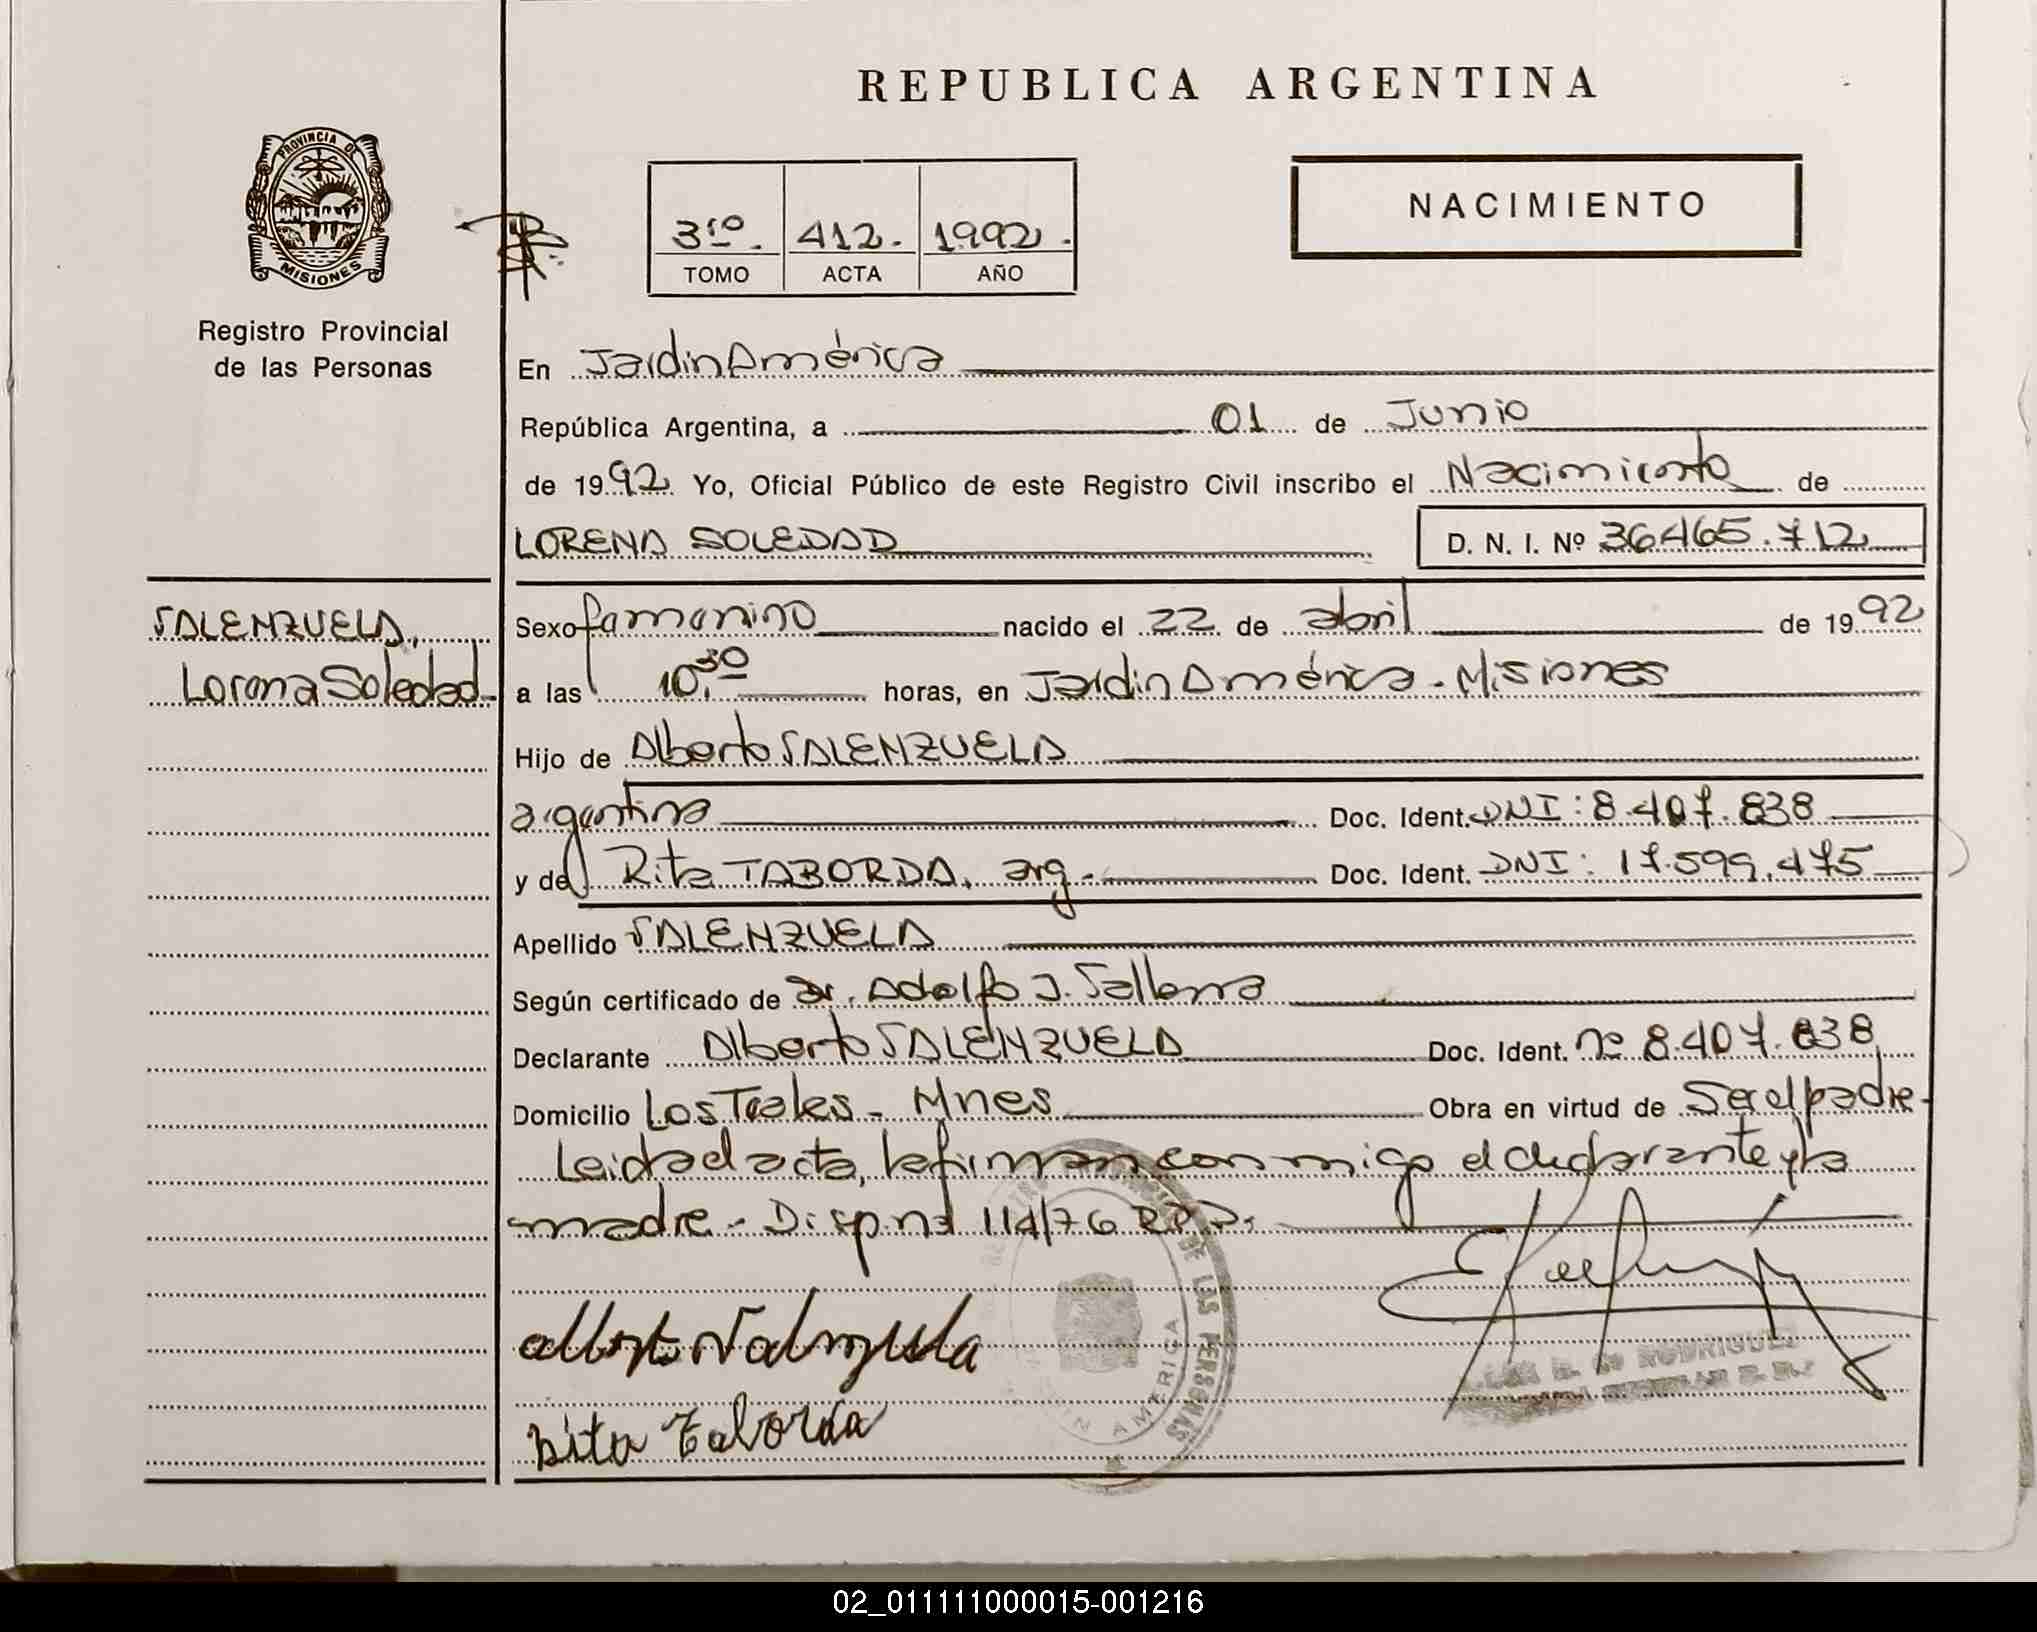 REPUBLICA ARGENTINA
PROVINCIA DE
MISIONES
Registro Provincial
de las Personas
3ro. 412. 1992.
TOMO ACTA AÑO
NACIMIENTO
En Jardin América
República Argentina, a 01 de Junio
de 1992. Yo, Oficial Público de este Registro Civil inscribo el Nacimiento de
LORENA SOLEDAD D. N. I. Nº 36465.712
VALENZUELA,
Lorena Soledad
Sexo femenino nacido el 22 de abril de 1992
a las 10,30 horas, en Jardin América - Misiones
Hijo de Alberto VALENZUELA
argentina Doc. Ident. DNI: 8.407.838
y de Rita TABORDA, arg. Doc. Ident. DNI: 17.599.475
Apellido VALENZUELA
Según certificado de Dr. Adolfo J.
Declarante Alberto VALENZUELA Doc. Ident. nº 8.407.838
Domicilio Los Teales - Mnes Obra en virtud de Ser el padre-
Leida el acta, la firman conmigo el declarante y la
madre - Disp. nº 114/76 R.P.P.
alberto Valenzuela
Rita Taborda
DE LAS PERSONAS
JARDIN AMERICA
RODRIGUEZ
02_011111000015-001216